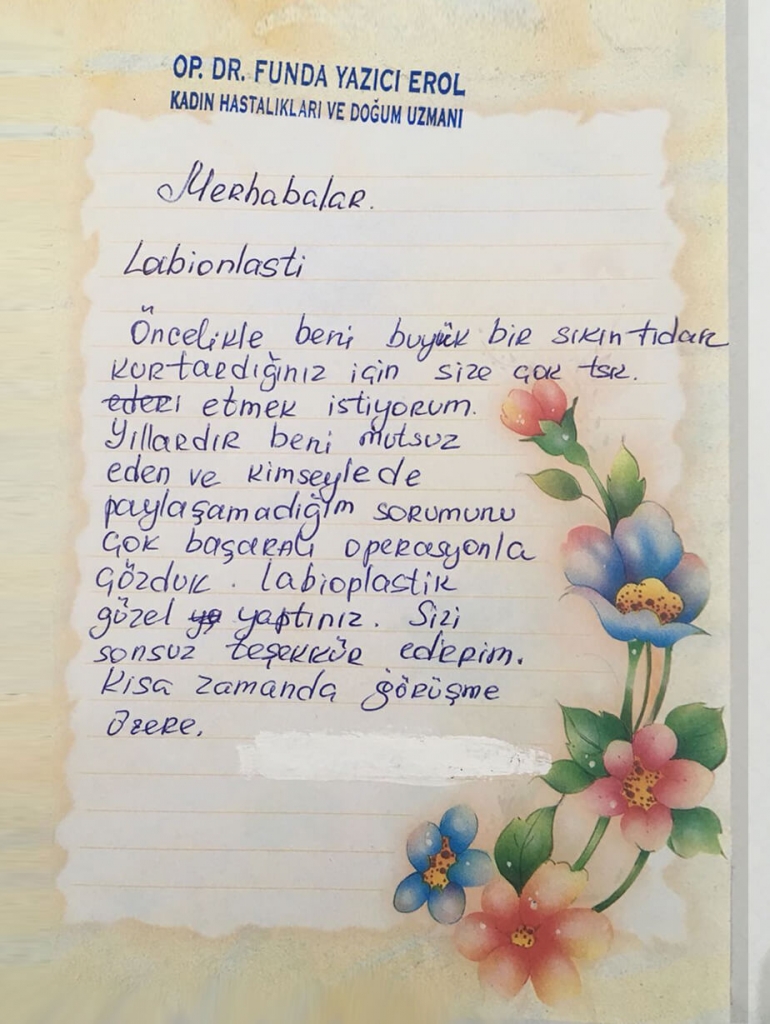 OP. DR. FUNDA YAZICI EROL
KADIN HASTALIKLARI VE DOĞUM UZMANI
Merhabalar.
Labionlasti
Öncelikle beni buyük bir sıkıntıdan
kurtardığınız için size çok tşk.
ederi etmek istiyorum.
Yıllardır beni mutsuz
eden ve kimseyle de
paylaşamadığım sorumunu
çok başaralı operasyonla
çözduk. labioplastik
güzel ya yaptınız. Sizi
sonsuz teşekkür ederim.
Kısa zamanda görüşme
üzere.